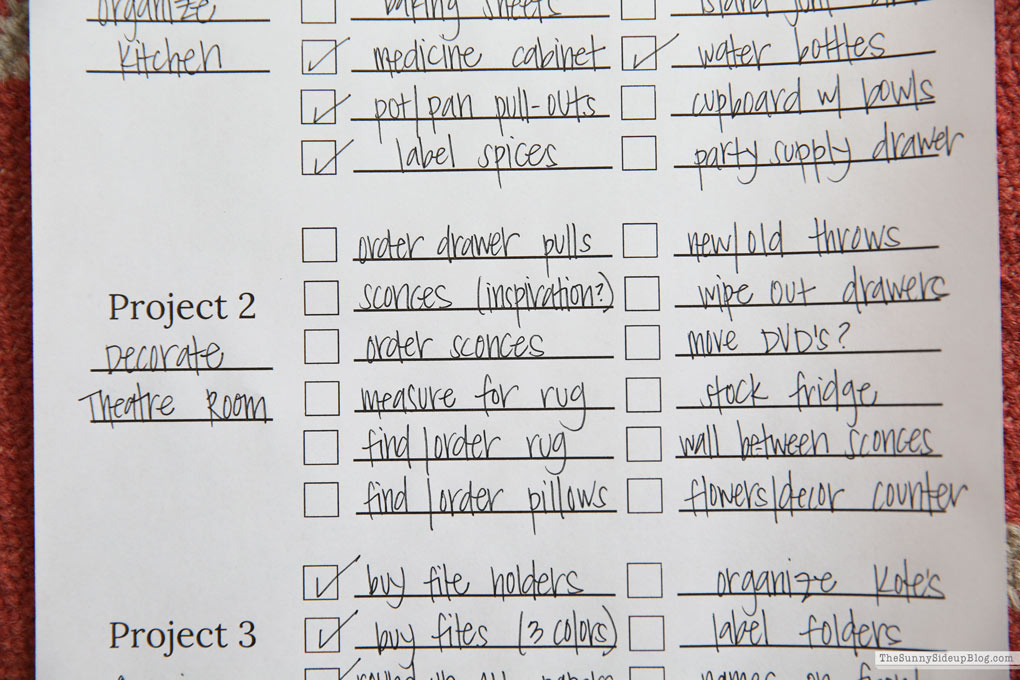 organize baking sheets
Kitchen medicine cabinet water bottles
pot/pan pull-outs cupboard w/ bowls
label spices party supply drawer
order drawer pulls new/old throws
Project 2 sconces (inspiration?) wipe out drawers
Decorate order sconces move DVD's?
Theatre Room measure for rug stock fridge
find/order rug wall between sconces
find/order pillows flowers/decor counter
buy file holders organize Kole's
Project 3 buy files (3 colors) label folders
TheSunnySideupBlog.com